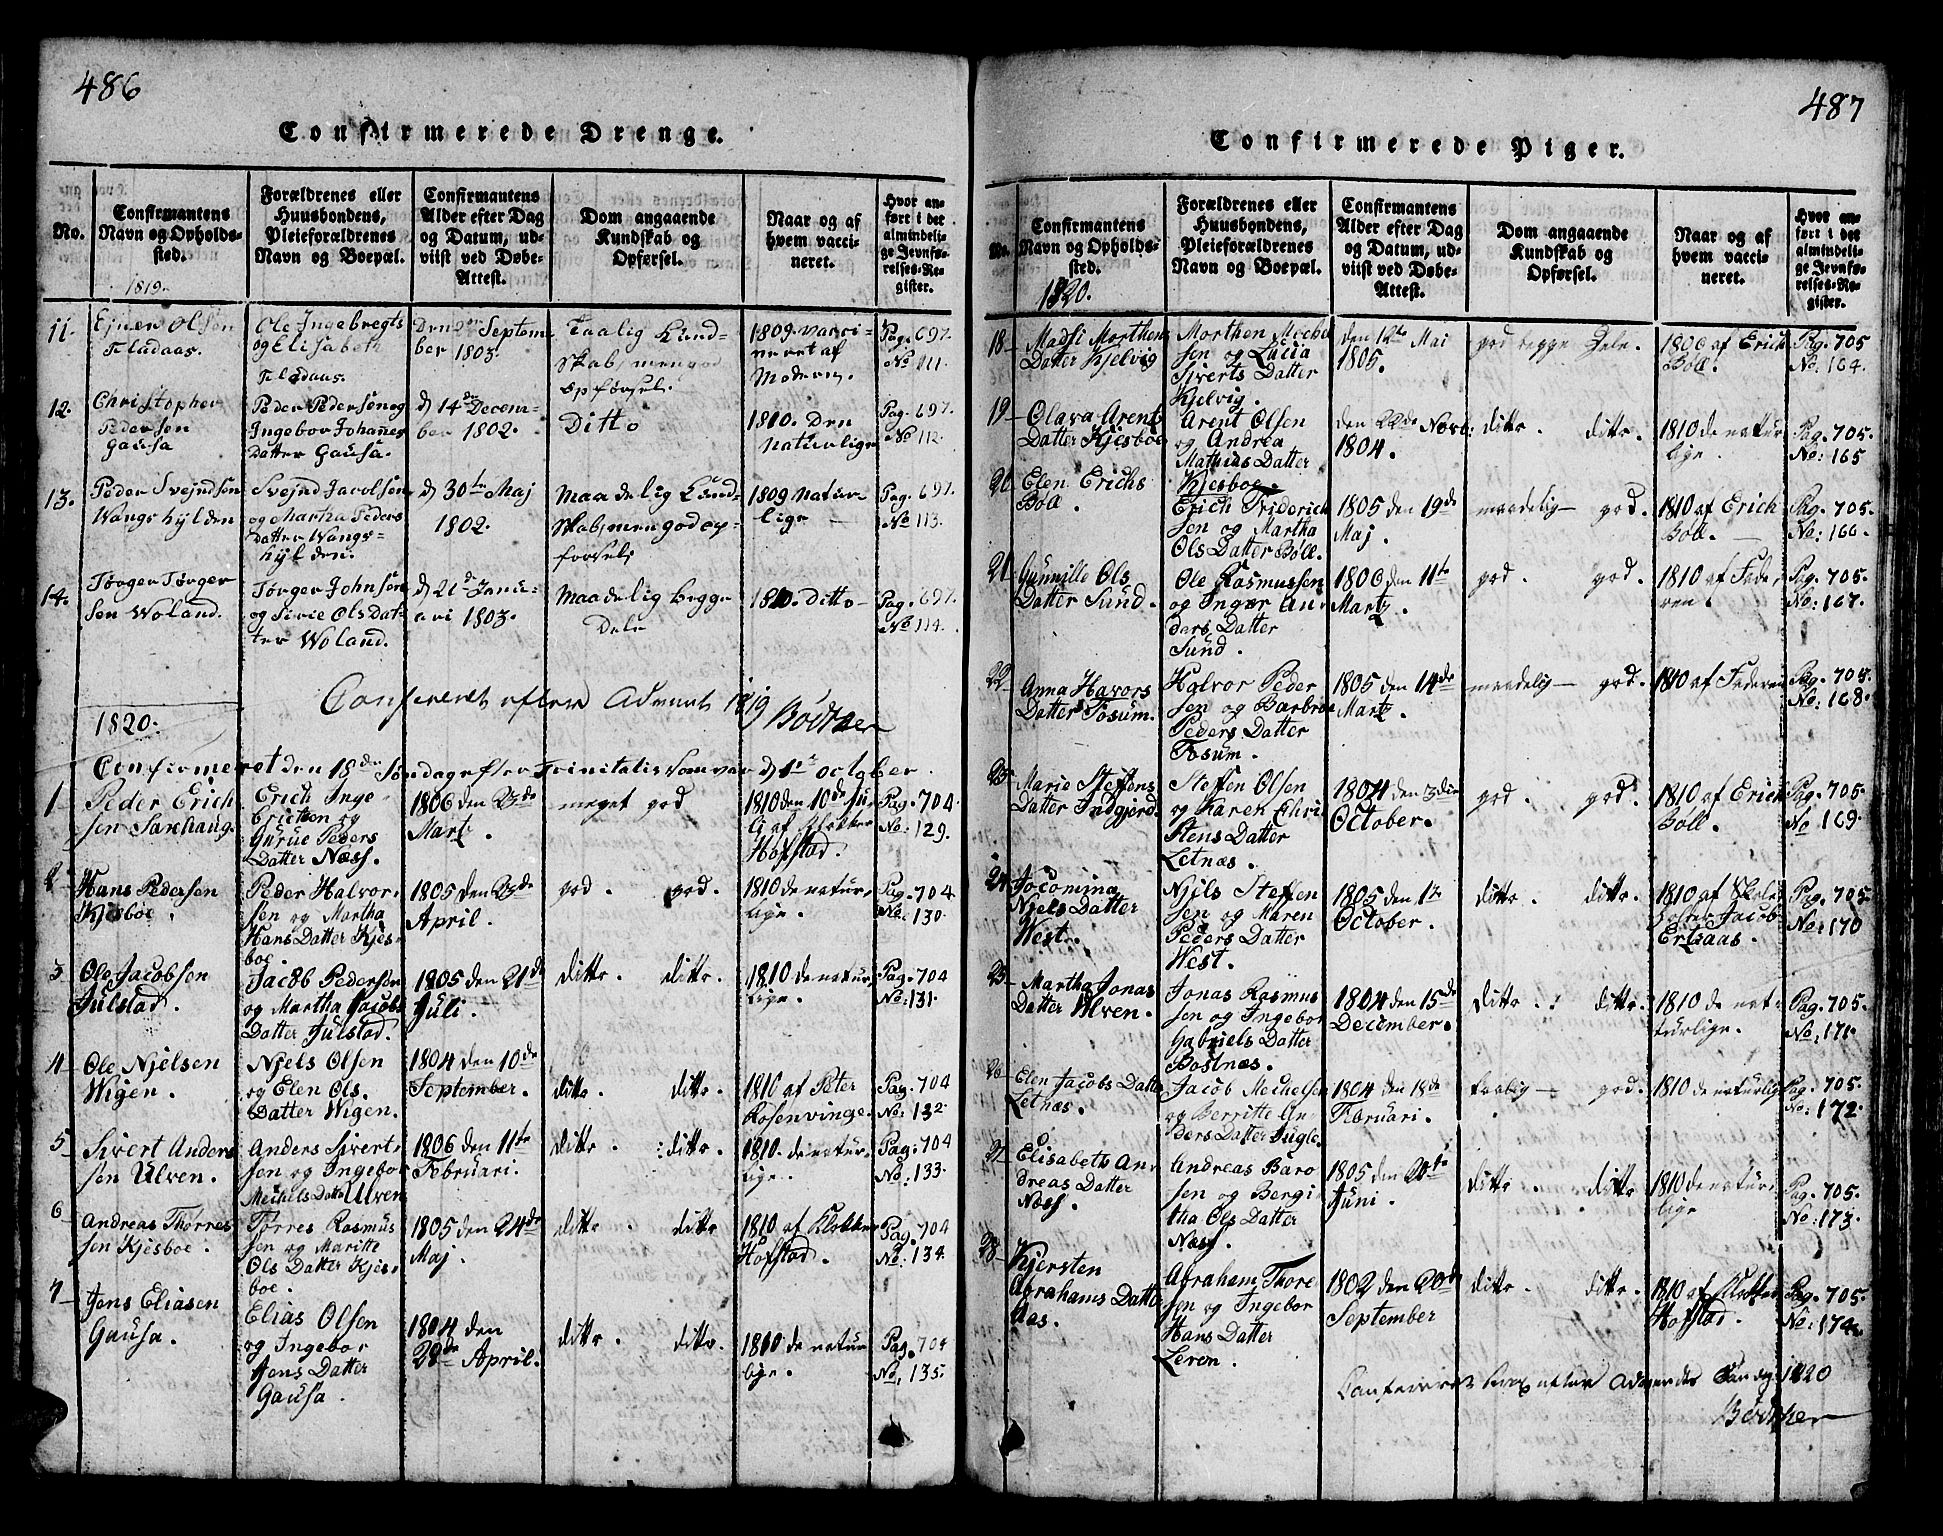 486
Confirmerede Drenge.
No.
Confirmantens
Navn og Opholds-
sted.
1819.
Forældrenes eller
Huusbondens,
Pleieforældrenes
Navn og Boepæl.
Confirmantens
Alder efter Dag
og Datum, ud-
viist ved Døbe-
Attest.
Dom angaaende
Kundskab og
Opførsel.
Naar og af
hvem vacci-
neret.
Hvor an-
ført i det
almindeli-
ge Jevnfø-
relses-Re-
gister.
11.
Ejner Olsen
Ole Ingebregts
og Elisabeth
September 1803.
Taalig Kund-
skab, men god
opførsel.
1809 vacci-
neret af
Moderen.
Pag. 697.
No 111.
12.
Christopher
Pedersen
Gausa
Peder Pedersen og
Ingebor Johannes
datter Gausa.
d 14de Decem-
ber 1802.
Ditto
1810. Den
naturlige
Pag. 697.
No 112.
13.
Peder Svejndsen
Wangs hylden
Svejnd Jacobsen
og Martha Peders
datter Wangs-
hylden.
d 30te Maj
1802.
Maadelig Kund-
skab, men god op-
førsel
1809 natur
lige
Pag. 697.
No 113.
14.
Tørger Tørger
sen Woland.
Tørger Johnsen
og Sirie Ols Dat-
ter Woland.
d 21de Janu-
ari 1803.
Maadelig begge
Dele
1810. Ditto
Pag. 697.
No 114.
efter Advent 1819 Bödtker
1820.
Confirmeret den 18de Søndag efter Trinitatis som var d 1te october.
1
Peder Erich
sen Saxhaug.
Erich Inge
brictsen og
Gurue Peders
Datter Næss.
1806 den 23de
Martz.
meget god
1810 den 10de Ju-
li af Klokker
Hofstad.
Pag. 704.
No: 129.
2
Hans Pedersen
Kjesboe.
Peder Halvor-
sen og Martha
Hans Datter Kjes-
boe.
1805 den 23de
April.
god. god.
1810 de natur-
lige.
Pag. 704
No: 130.
3
Ole Jacobsen
Julstad.
Jacob Pedersen
og Martha Jacobs
Datter Julstad.
1805 den 21de
Juli.
ditto. ditto.
1810 de natur-
lige.
Pag. 704
No: 131.
4
Ole Njelsen
Wigen.
Njels Olsen
og Elen Ols.
Datter Wigen.
1804 den 10de
September.
ditto. ditto.
1810 af Peter
Rosenvinge
Pag. 704
No: 132.
5
Sivert Anders
sen Ulven.
Anders Sivert-
sen og Ingebor
Mechels Datter Ulven
1806 den 11te
Februari.
ditto. ditto.
1810. de natur-
lige.
Pag. 704
No: 133.
6
Andreas Thørres
sen Kjesboe.
Torres Rasmus
sen og Maritte
Ols Datter Kjes-
boe.
1805 den 24de
Maj.
ditto. ditto
1810 af Klokker
Hofstad.
Pag. 704
No: 134.
7
Jens Eliasen
Gausa.
Elias Olsen
og Ingebor
Jens Datter
Gausa.
1804 den
28de April.
ditto. ditto.
1810 de natur
lige.
Pag. 704
No: 135.
487
Confirmerede Piger.
No.
Confirmantens
Navn og Opholds-
sted.
1820.
Forældrenes eller
Huusbondens,
Pleieforældrenes
Navn og Boepæl.
Confirmantens
Alder efter Dag
og Datum, ud-
viist ved Døbe-
Attest.
Dom angaaende
Kundskab og
Opførsel.
Naar og af
hvem vacci-
neret.
Hvor an-
ført i det
almindeli-
ge Jevnfø-
relses-Re-
gister.
18
Madsi Morthens
Datter Kjelvig
Morthen Mechel
sen og Lucia
Siverts Datter
Kjelvig.
den 12te Mai
1805.
god begge Dele.
1806 af Erich
Böll.
Pag. 705
No: 164.
19
Olava Arents
Datter Kjesboe
Arent Olsen
og Andrea
Mathias Datter
Kjesboe.
den 22de Novb:
1804.
ditto. ditto.
1810 de natur
lige.
Pag. 705.
No: 165
20
Elen Erichs
Böll.
Erich Friderich
sen og Martha
Ols Datter Böll.
1805 den 19de
Maj.
maadelig god.
1810 af Erich
Böll.
Pag. 705.
No: 166.
21
Gunnille Ols
Datter Sund.
Ole Rasmussen
og Inger An-
ders Datter
Sund.
1806 den 11te
Martz.
god. god.
1810 af Fade
ren.
Pag. 705.
No: 167.
22
Anna Havors
Datter Fosum.
Halvor Peder
sen og Barbroe
Peders Datter
Fosum.
1805 den 14de
Martz.
maadelig god.
1810 af Faderen
Pag. 705.
No: 168.
23
Marie Steffens
Datter Indgjord
Steffen Olsen
og Karen Chri
stens Datter
Letnæs.
1804 den 3die
October.
god. god.
1810 af Erich
Böll.
Pag. 705.
No 169.
24
Jocomina
Njels Datter
West.
Njels Steffen
sen og Maren
Peders Datter
West.
1805 den 1te
October.
ditto. ditto.
1810 af Skole-
Jacob
Ertzaas.
Pag. 705.
No: 170
25
Martha Jonas
Datter Ulven.
Jonas Rasmus
sen og Ingebor
Gabriels Datter
Bostnæs.
1804 den 15de
December.
ditto. ditto.
1810 de na-
turlige.
Pag. 705.
No: 171.
26
Elen Jacobs Datter
Letnæs.
Jacob Mechelsen
og Berritte An
ders Datter Fugle.
1804 den 18de
Februari.
taalig god.
1810 de naturlig
Pag. 705.
No: 172.
27
Elisabeth An-
dreas Datter
Næss.
Andreas Baro
sen og Bergi-
tha Ols Datter
Næss.
1805 den 20te
Juni.
ditto. ditto.
1810 de natur
lige
Pag. 705.
No: 173.
28
Kjersten
Abrahams Datter
Aas.
Abraham Thore
sen og Ingebor
Hans Datter
Leren.
1802 den 20de
September
ditto. ditto.
1810 af Klokker
Hofstad.
Pag. 705.
No: 174.
1820
Bödtker